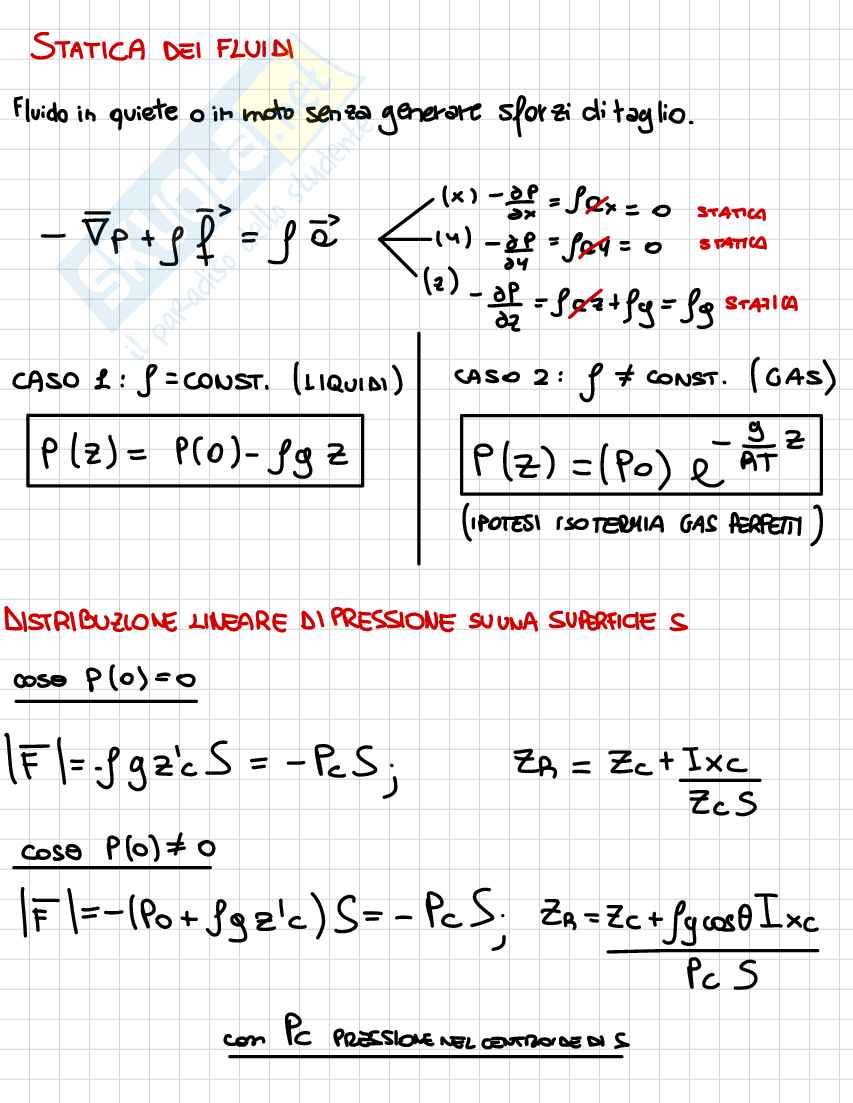 STATICA DEI FLUIDI
Fluido in quiete o in moto senza generare sforzi di taglio.
− ∇̅P + ρ f⃗ = ρ a⃗
(x) − ∂P/∂x = ρax = 0 STATICA
(y) − ∂P/∂y = ρay = 0 STATICA
(z) − ∂P/∂z = ρaz + ρg = ρg STATICA
CASO 1 : ρ = CONST. (LIQUIDI)
P(z) = P(0) − ρg z
CASO 2 : ρ ≠ CONST. (GAS)
P(z) = (P0) e^(−g/RT z)
(IPOTESI ISOTERMIA GAS PERFETTI)
DISTRIBUZIONE LINEARE DI PRESSIONE SU UNA SUPERFICIE S
caso P(0) = 0
|F̅| = -ρ g z'c S = − Pc S ; zR = zc + Ixc/(zc S)
caso P(0) ≠ 0
|F̅| = −(P0 + ρ g z'c) S = − Pc S ; zR = (zc + ρg cosθ Ixc)/(Pc S)
con Pc PRESSIONE NEL CENTROIDE DI S
SKUOLA.net
il paradiso dello studente